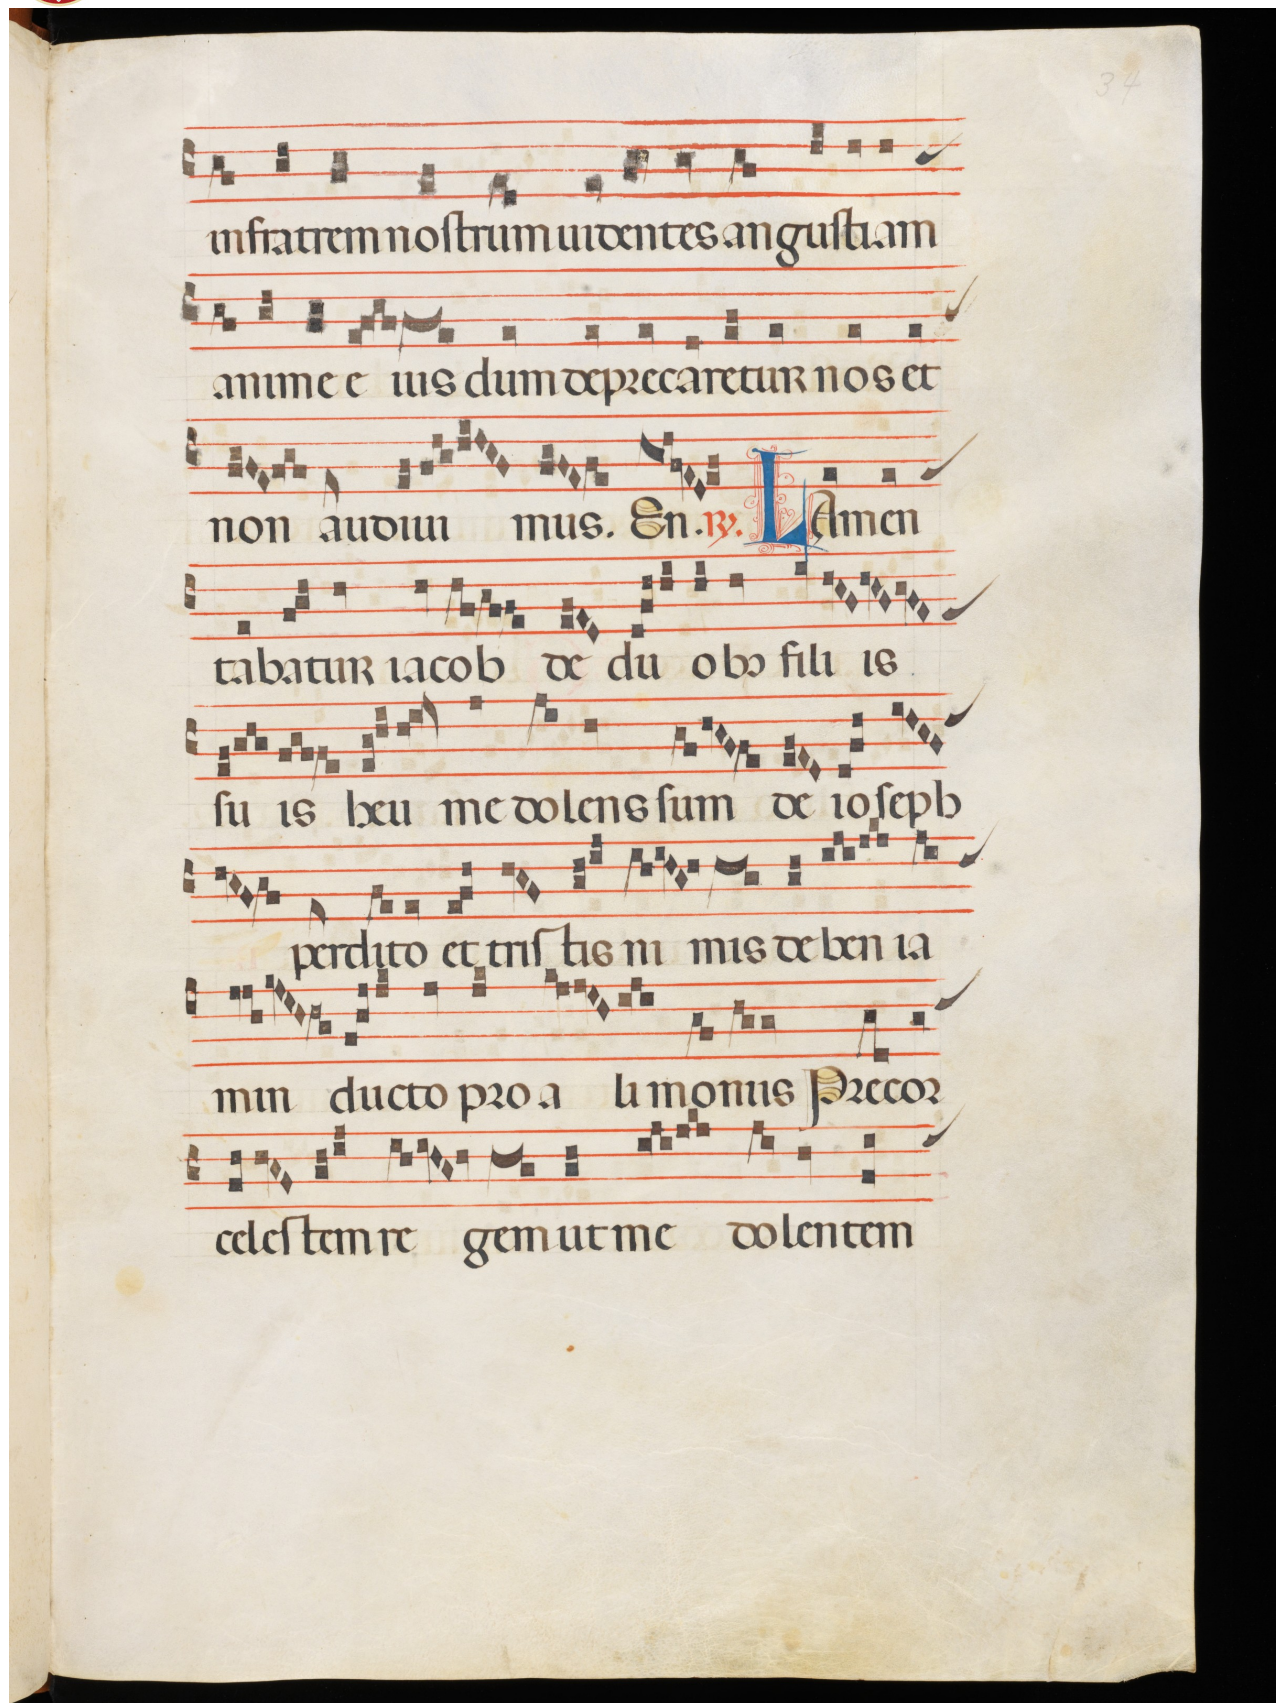 34
in fratrem nostrum uidentes angustiam
anime e ius dum deprecaretur nos et
non audiui mus. En. ꝶ. LAmen
tabatur iacob de du obꝰ fili is
su is heu me dolens sum de ioseph
perdito et tris tis ni mis de ben ia
min ducto pro a li moniis Precor
celestem re gem ut me dolentem